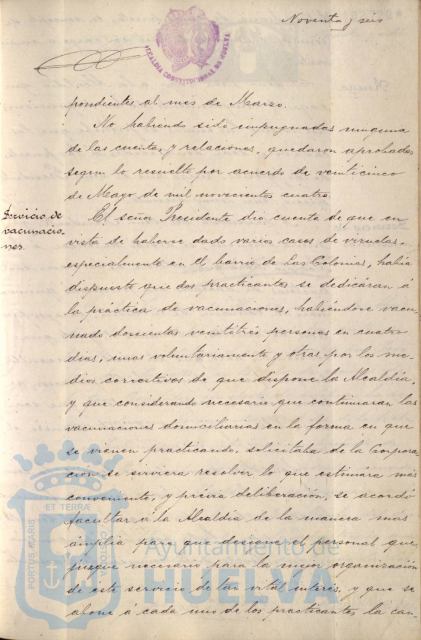 Noventa y seis
ALCALDIA CONSTITUCIONAL DE HUELVA
pondientes al mes de Marzo.
No habiendo sido impugnadas ninguna
de las cuentas y relaciones, quedaron aprobadas
segun lo resuelto por acuerdo de veinticinco
de Mayo de mil novecientos cuatro.
Servicio de
vacunacio-
nes.
El señor Presidente dio cuenta de que en
vista de haberse dado varios casos de viruelas,
especialmente en el barrio de Las Colonias, habia
dispuesto que dos practicantes se dedicáran á
la práctica de vacunaciones, habiéndose vacu-
nado doscientas veintitrés personas en cuatro
dias, unas voluntariamente y otras por los me-
dios correctivos de que dispone la Alcaldía,
y que considerando necesario que continuaran las
vacunaciones domiciliarias en la forma en que
se vienen practicando, solicitaba de la Corpora-
cion se sirviera resolver lo que estimára mas
conveniente, y prévia deliberación, se acordó
facultar á la Alcaldia de la manera mas
ámplia para que designe el personal que
juzgue necesario para la mejor organización
de este servicio de tan vital interés, y que se
abone á cada uno de los practicantes la can-
PORTUS MARIS ET TERRÆ CUSTODIA
Ayuntamiento de
HUELVA